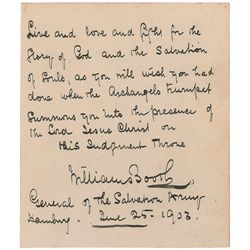 Live and love and fight for the
Glory of God and the Salvation
of Souls, as you will wish you had
done when the Archangels trumpet
Summons you into the presence of
the Lord Jesus Christ on
His Judgment Throne
William Booth
General of the Salvation Army
Hamburg. June 25. 1903.